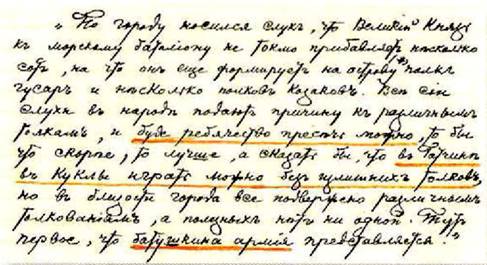 „По городу носился слухъ, что Великій Князь
къ морскому баталіону не токмо прибавляетъ нѣсколько
сотъ, на что онъ еще формируетъ на острову полкъ
гусаръ и нѣсколько полковъ Козаковъ. Всѣ сіи
слухи въ народѣ подаютъ причину къ различнымъ
толкамъ, и буде ребячество пресѣчь можно, то бы
что скорѣе, то лучше, а сказать бы, что въ Гатчинѣ
въ куклы играть можно безъ излишнихъ толковъ,
но въ близости города все подвержено различнымъ
толкованіямъ, а полезныхъ нѣтъ ни одной. Тутъ
первое, что батушкина армія представляется."